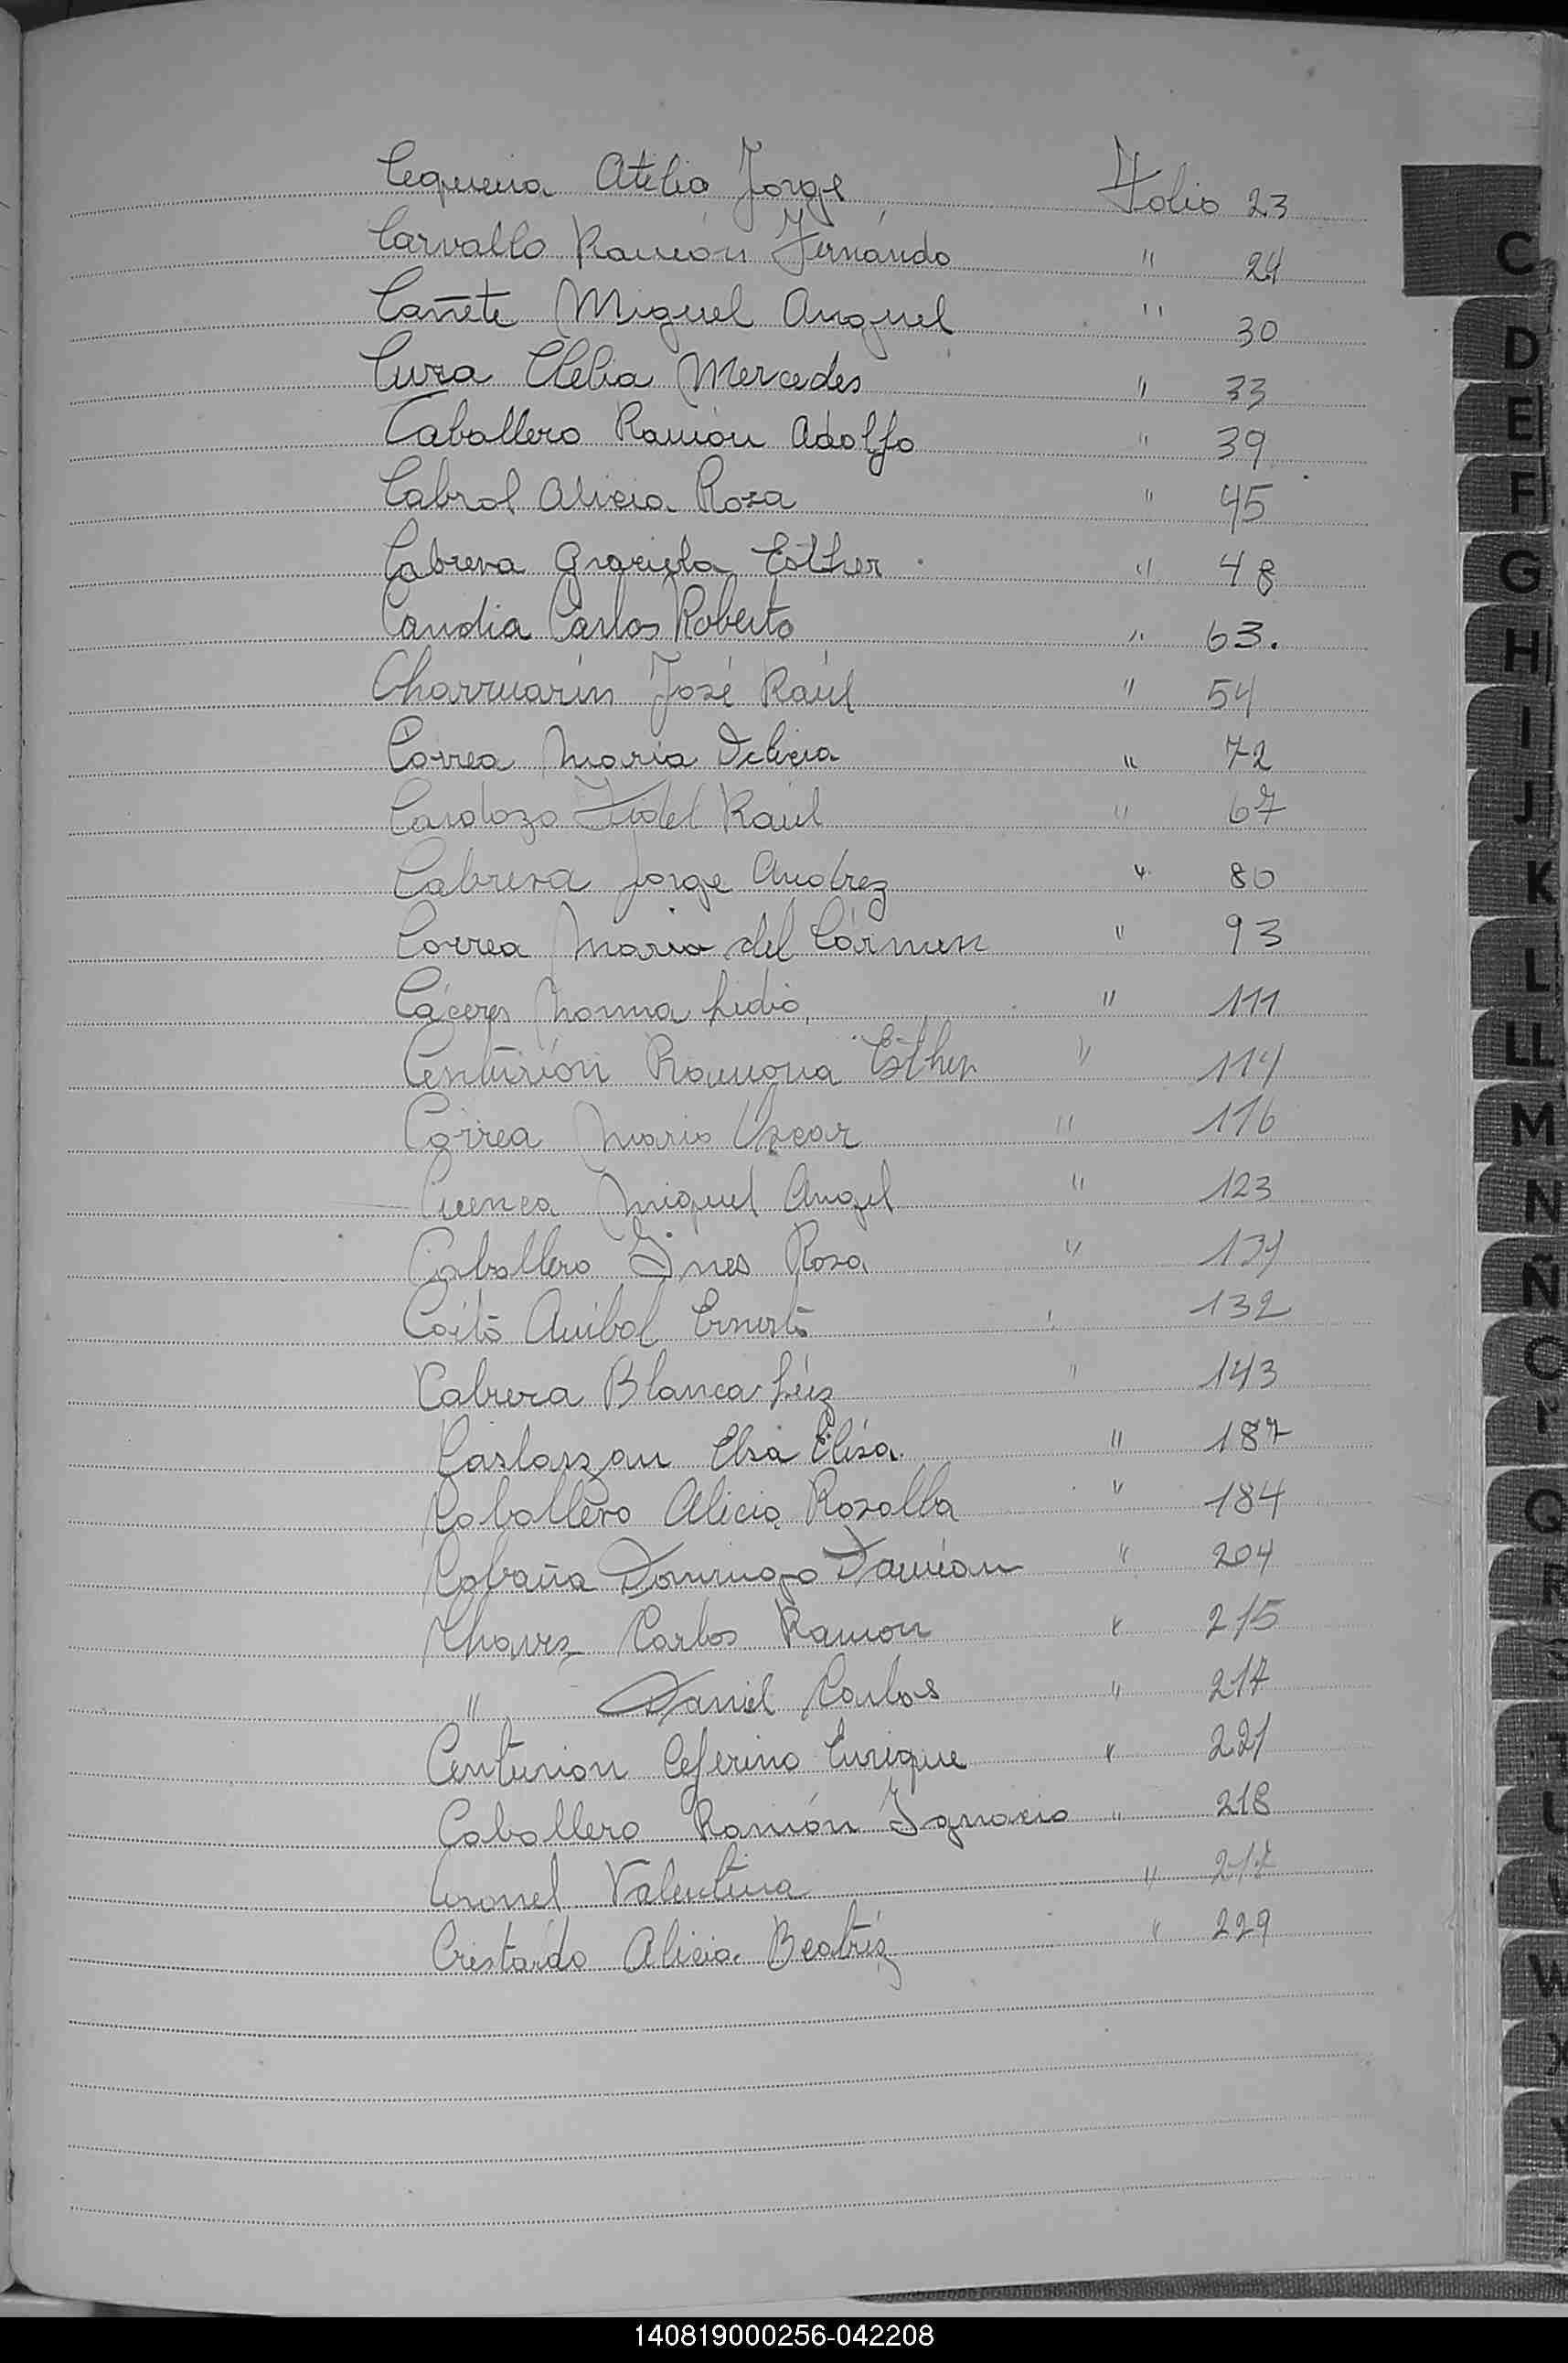 Cequeira Atilio Jorge Folio 23
Carvallo Ramón Fernándo " 24
Cañete Miguel Anguel " 30
Cuza Clelia Mercedes " 33
Caballero Ramón Adolfo " 39
Cabral Alicia Rosa " 45
Cabrera Graciela Esther " 48
Candia Carlos Roberto " 63.
Charruarín José Raúl " 54
Correa Maria Delicia " 72
Cardozo Fidel Raúl " 67
Cabrera Jorge Andrez " 80
Correa Maria del Cármen " 93
Cáceres Norma Lidia " 111
Centurión Ramona Esther " 114
Correa Mario Oscar " 116
Cuenca Miguel Angel " 123
Caballero Ines Rosa " 131
Coito Anibal Ernesto " 132
Cabrera Blanca Luz " 143
Elsa Elisa " 187
Caballero Alicia Rosalba " 184
Cabaña Domingo Damián " 204
Chavez Carlos Ramon " 215
" Daniel Carlos " 217
Centurion Ceferino Enrique " 221
Caballero Ramón Ignacio " 218
Coronel Valentina " 217
Cristaldo Alicia Beatríz " 229
C
D
E
F
G
H
I
J
K
L
LL
M
N
Ñ
O
P
Q
R
S
T
U
V
W
X
Y
140819000256-042208